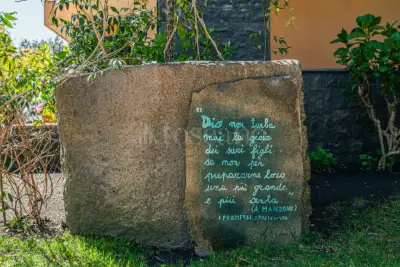 "Dio non turba
mai la gioia
dei suoi figli
se non per
prepararne loro
una più grande
e più certa
(A. MANZONI)
I PROMESSI SPOSI